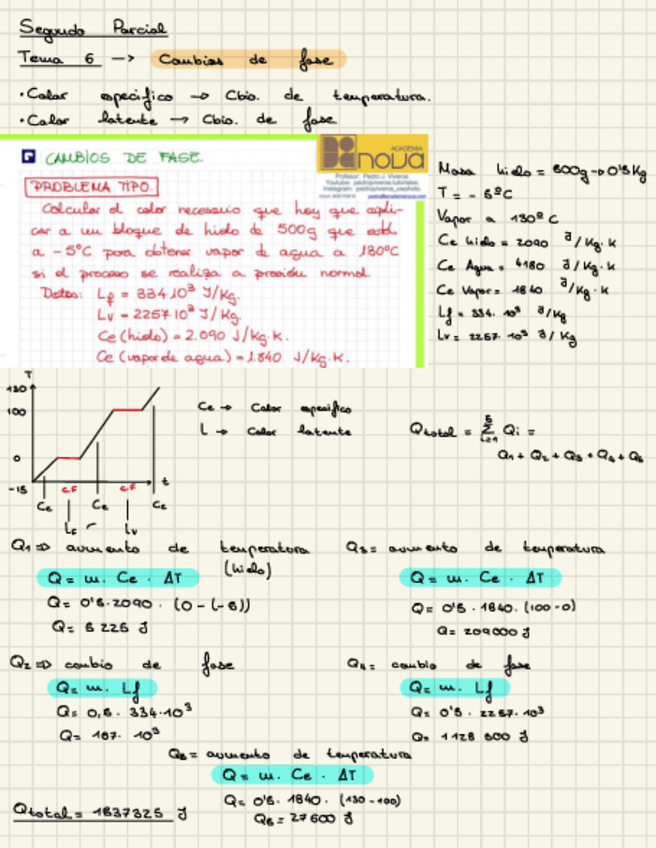 Segundo Parcial
Tema 6 -> Cambios de fase
• Calor especifico → Cbio. de temperatura.
• Calor latente → Cbio. de fase
CAMBIOS DE FASE.
ACADEMIA
nova
Profesor: Pedro J. Viveros.
PROBLEMA TIPO.
Calcular el calor necesario que hay que apli-
car a un bloque de hielo de 500g que está
a -5°C para obtener vapor de agua a 130°C
si el proceso se realiza a presión normal.
Datos: Lf = 334·10³ J/Kg.
Lv = 2257·10³ J/Kg.
Ce (hielo) = 2.090 J/Kg·K.
Ce (vapor de agua) = 1.840 J/Kg·K.
Masa hielo = 500g → 0'5 Kg
T = - 5ºC
Vapor a 130º C
Ce hielo = 2090 J/Kg·K
Ce Agua = 4180 J/Kg·K
Ce Vapor = 1840 J/Kg·K
Lf = 334·10³ J/Kg
Lv = 2257·10³ J/Kg
T
130
100
0
-15
t
C.F
C.F
Ce
Ce
Ce
Lf
Lv
Ce → Calor especifico
L → Calor latente
Qtotal = 5 Σ i=1 Qi =
Q1 + Q2 + Q3 + Q4 + Q5
Q1 ⇒ aumento de temperatura
(hielo)
Q = m · Ce · ΔT
Q = 0'5 · 2090 · (0 - (-5))
Q = 5 225 J
Q3 = aumento de temperatura
Q = m · Ce · ΔT
Q = 0'5 · 1840 · (100-0)
Q = 209000 J
Q2 ⇒ cambio de fase
Q = m · Lf
Q = 0,5 · 334·10³
Q = 167 · 10³
Q4 = cambio de fase
Q = m · Lf
Q = 0'5 · 2257·10³
Q = 1128 500 J
Q5 = aumento de temperatura
Q = m · Ce · ΔT
Q = 0'5 · 1840 · (130-100)
Q5 = 27600 J
Qtotal = 1537325 J